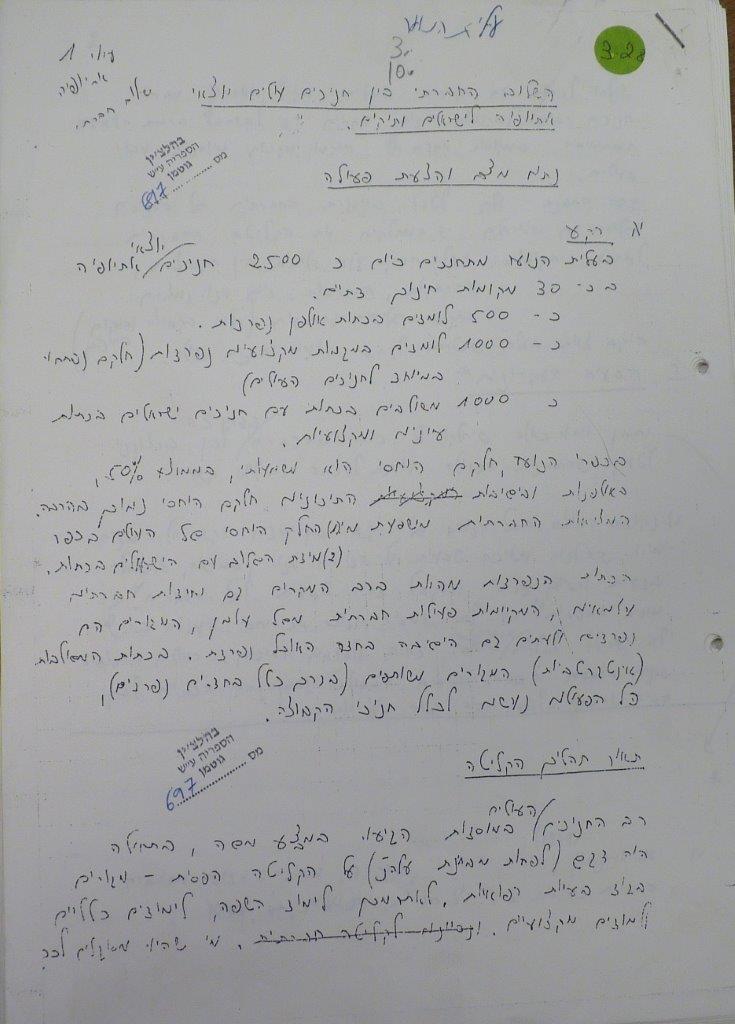 עלית הנוער
3.
10.
3.28
עיוני 1
אתיופיה
שלוב חברתי
השלוב החברתי בין חניכים עולים יוצאי
אתיופיה לישראלים ותיקים.
נתוני מצב והצעת פעולה
בהלצין
הספריה ע״ש
גוטמן
מס 697
א רקע
בעלית הנוער מתחנכים כיום כ 2500 חניכים/יוצאי אתיופיה
ב כ- 30 מקומות חינוך דתיים.
כ- 500 לומדים בכתות אולפן נפרדות.
כ- 1000 לומדים במגמות מקצועיות נפרדות (חלקם נפתחו
במיוחד לחניכים העולים)
כ 1000 משולבים בכתות עם חניכים ישראלים בכתות
עיוניות ומקצועיות.
בכפרי הנוער חלקם היחסי הוא משמעותי, בממוצע 50%,
באולפנות ובישיבות התיכוניות חלקם היחסי נמוך בהרבה.
המציאות החברתית מושפעת מ(1) החלק היחסי של העולים בכפר
(2) מידת השלוב עם הישראלים בכתות.
הכתות הנפרדות מהוות ברב המקרים גם יחידות חברתיות
עצמאיות, המקיימות פעילות חברתית משל עצמן, המגורים הם
נפרדים ולעתים גם הישיבה בחדר האוכל נפרדת. בכתות המשולבות
(אינטגרטיביות) המגורים משותפים (בדרך כלל בחדרים נפרדים),
כל הפעילות נעשית לכלל חניכי הקבוצה.
בהלצין
הספריה ע״ש
גוטמן
מס 697
תאור תהליך הקליטה
רב החניכים/העולים במוסדות הגיעו במבצע משה, בתחילה
היה דגש (לפחות מבחינת עלה״נ) על הקליטה הפיסית - מגורים
ביגוד בעיות רפואיות. לאחר מכן לימוד השפה, לימודים כלליים
ולמודים מקצועיים. מי שהיו מסוגלים לכך